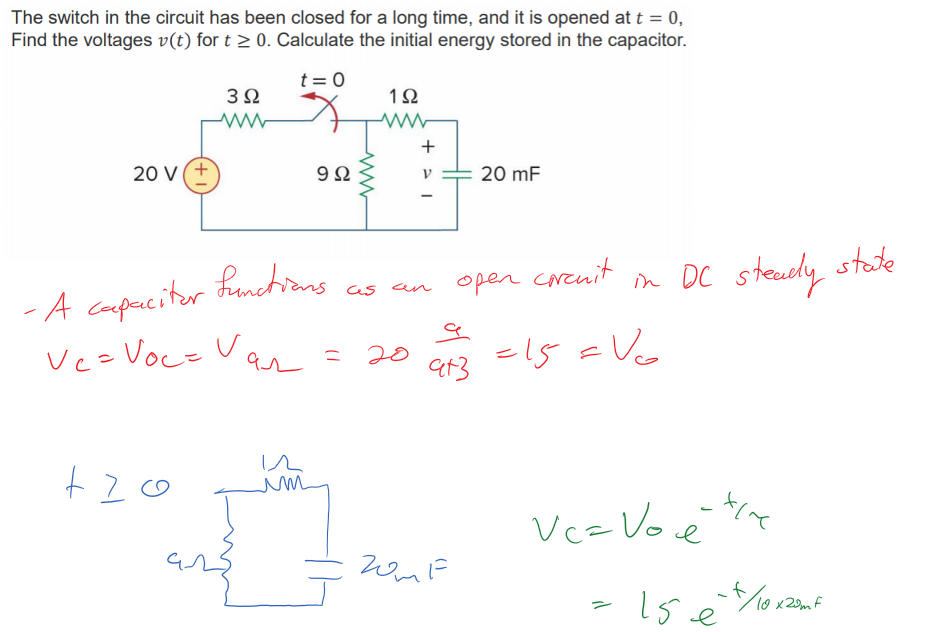 The switch in the circuit has been closed for a long time, and it is opened at t = 0,
Find the voltages v(t) for t ≥ 0. Calculate the initial energy stored in the capacitor.
t = 0
3 Ω
1 Ω
20 V
+
9 Ω
+
v
−
20 mF
- A capacitor functions as an open circuit in DC steady state
Vc = Voc = V9Ω = 20 9/(9+3) = 15 = Vo
t ≥ 0
1Ω
9Ω
20mF
Vc = Vo e^(-t/τ)
= 15 e^(-t/10 x 20mF)